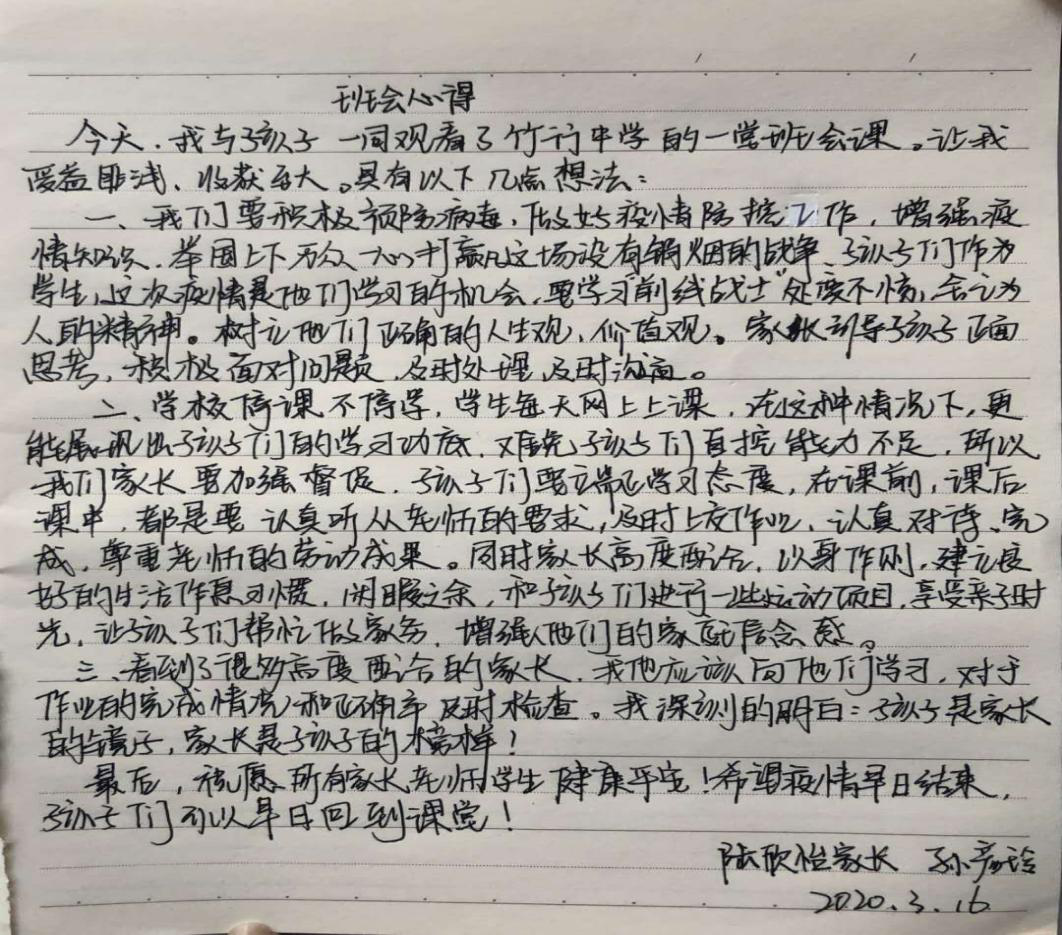 班会心得
今天，我与孩子一同观看了竹行中学的一堂班会课。让我
受益匪浅、收获至大。具有以下几点想法：
一、我们要积极预防病毒，做好疫情防控工作，增强疫
情知识，举国上下万众一心打赢这场没有销烟的战争、孩子们作为
学生，这次疫情是他们学习的机会，要学习"前线战士"处变不惊，舍己为
人的精神。树立他们正确的人生观，价值观。家长引导孩子正面
思考，积极面对问题，及时处理，及时沟通。
二、学校停课不停学，学生每天网上上课，在这种情况下，更
能展现出孩子们的学习功底，难免孩子们自控能力不足，所以
我们家长要加强督促，孩子们要立端正学习态度，在课前，课后
课中，都是要认真听从老师的要求，及时上交作业、认真对待、完
成，尊重老师的劳动成果。同时家长高度配合，以身作则，建立良
好的生活作息习惯，闲暇之余，和孩子们进行一些运动项目，享受亲子时
光，让孩子们帮忙做家务，增强他们的家庭信念感。
三、看到了很多高度配合的家长，我也应该向他们学习，对于
作业的完成情况和正确率及时检查。我深刻的明白：孩子是家长
的镜子，家长是孩子的榜样！
最后，祝愿所有家长老师学生健康平安！希望疫情早日结束，
孩子们可以早日回到课堂！
陆欣怡家长 孙彦玲
2020.3.16